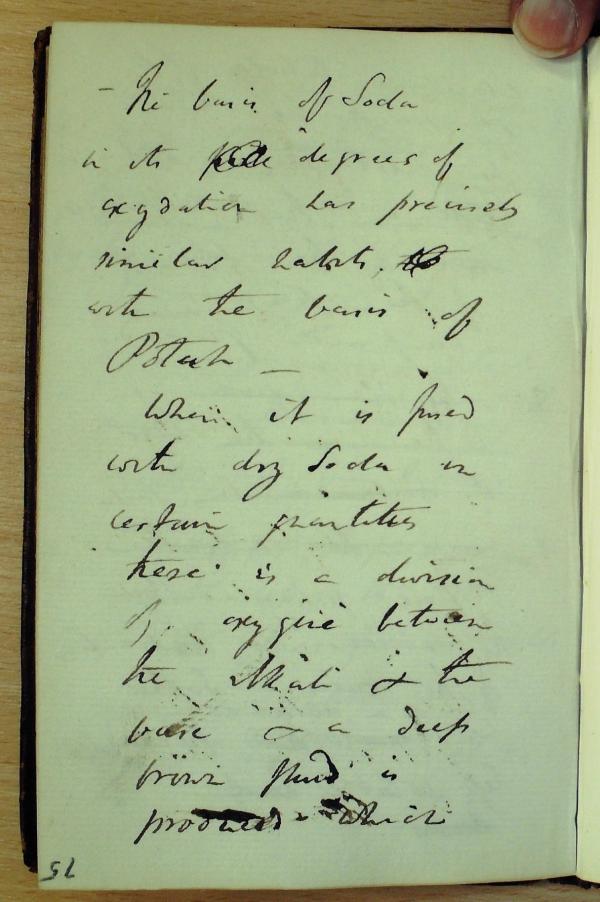 - The basis of Soda
in its degrees of
oxydation has precisely
similar habits
with the basis of
Potash -
When it is fused
with dry Soda in
certain quantities
there is a division
of oxygene between
the Alkali & the
base & a deep
brown fluid is
produced which
51